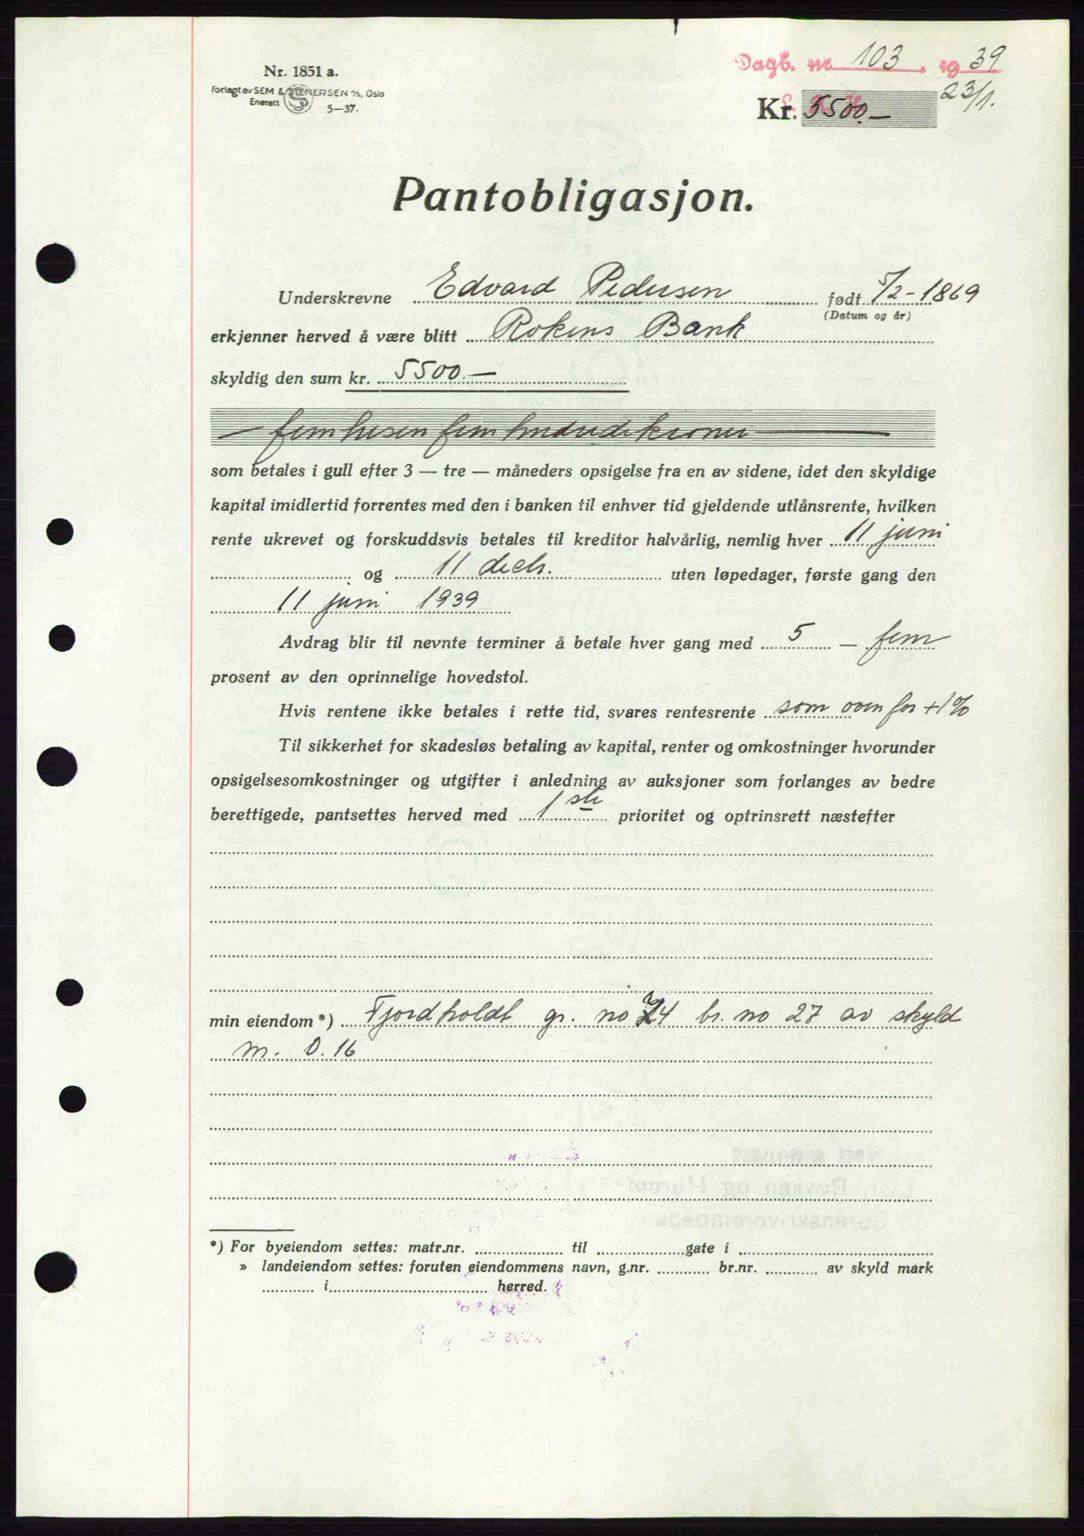 Dagb. nr. 103. 1939
23/1.
Nr. 1851 a.
Forlagt av SEM & STENERSEN A/S, Oslo
Enerett 5—37.
Kr. 5500.—
Pantobligasjon.
Underskrevne Edvard Pedersen født 5/2-1869
(Datum og år)
erkjenner herved å være blitt Rokens Bank
skyldig den sum kr. 5500.—
— femtusen fem hundrede kroner —
som betales i gull efter 3 — tre — måneders opsigelse fra en av sidene, idet den skyldige
kapital imidlertid forrentes med den i banken til enhver tid gjeldende utlånsrente, hvilken
rente ukrevet og forskuddsvis betales til kreditor halvårlig, nemlig hver 11 juni
og 11 decb. uten løpedager, første gang den
11 juni 1939
Avdrag blir til nevnte terminer å betale hver gang med 5 — fem
prosent av den oprinnelige hovedstol.
Hvis rentene ikke betales i rette tid, svares rentesrente som oven for +1%
Til sikkerhet for skadesløs betaling av kapital, renter og omkostninger hvorunder
opsigelsesomkostninger og utgifter i anledning av auksjoner som forlanges av bedre
berettigede, pantsettes herved med 1ste prioritet og optrinsrett næstefter
min eiendom *) Fjordholdt gr. no 74 br. no 27 av skyld
m. 0.16
*) For byeiendom settes: matr.nr. til gate i
» landeiendom settes: foruten eiendommens navn, g.nr. br.nr. av skyld mark
i herred.